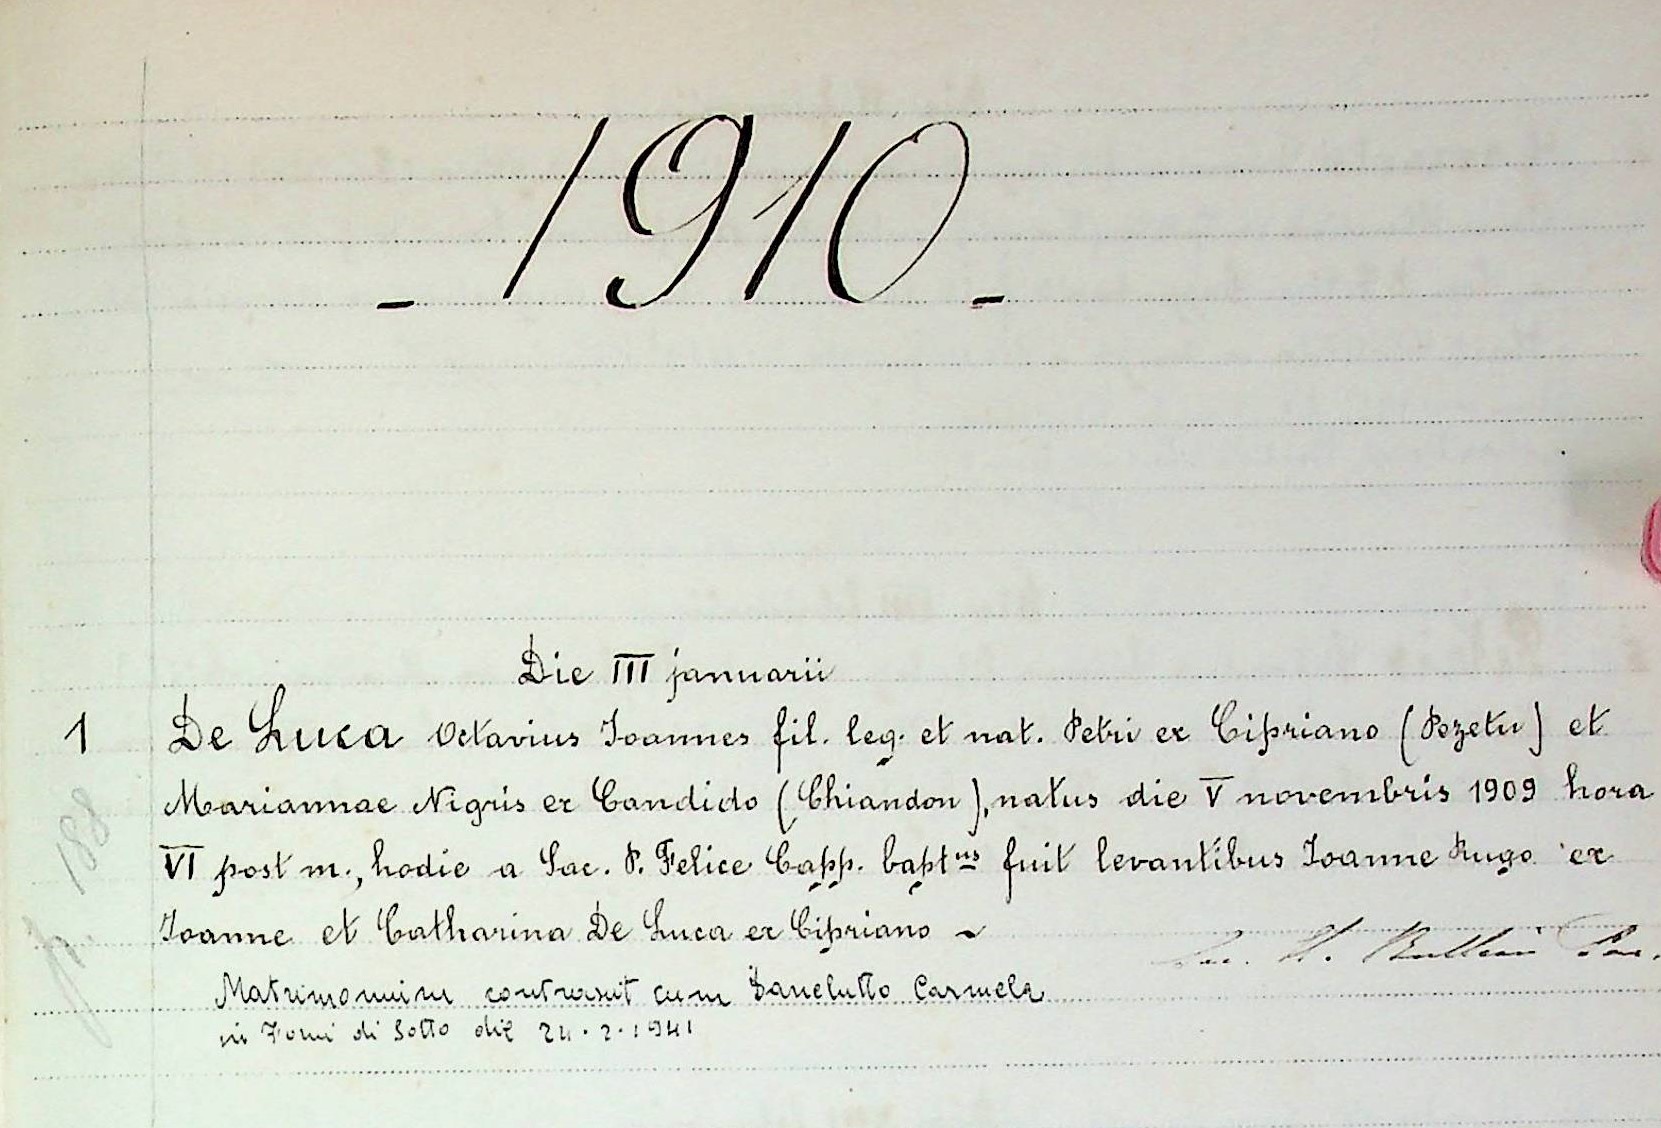 - 1910 -
Die III januarii
1 De Luca Octavius Ioannes fil. leg. et nat. Petri ex Cipriano (Pezetu) et
Mariannae Nigris ex Candido (Chiandon), natus die V novembris 1909 hora
VI post m., hodie a Sac. P. Felice Capp. baptus fuit levantibus Ioanne Rugo ex
Ioanne et Catharina De Luca ex Cipriano ~
Sac.
Matrimonium contraxit cum Zanelutto Carmela
in Forni di Sotto die 24.2.1941
p. 188